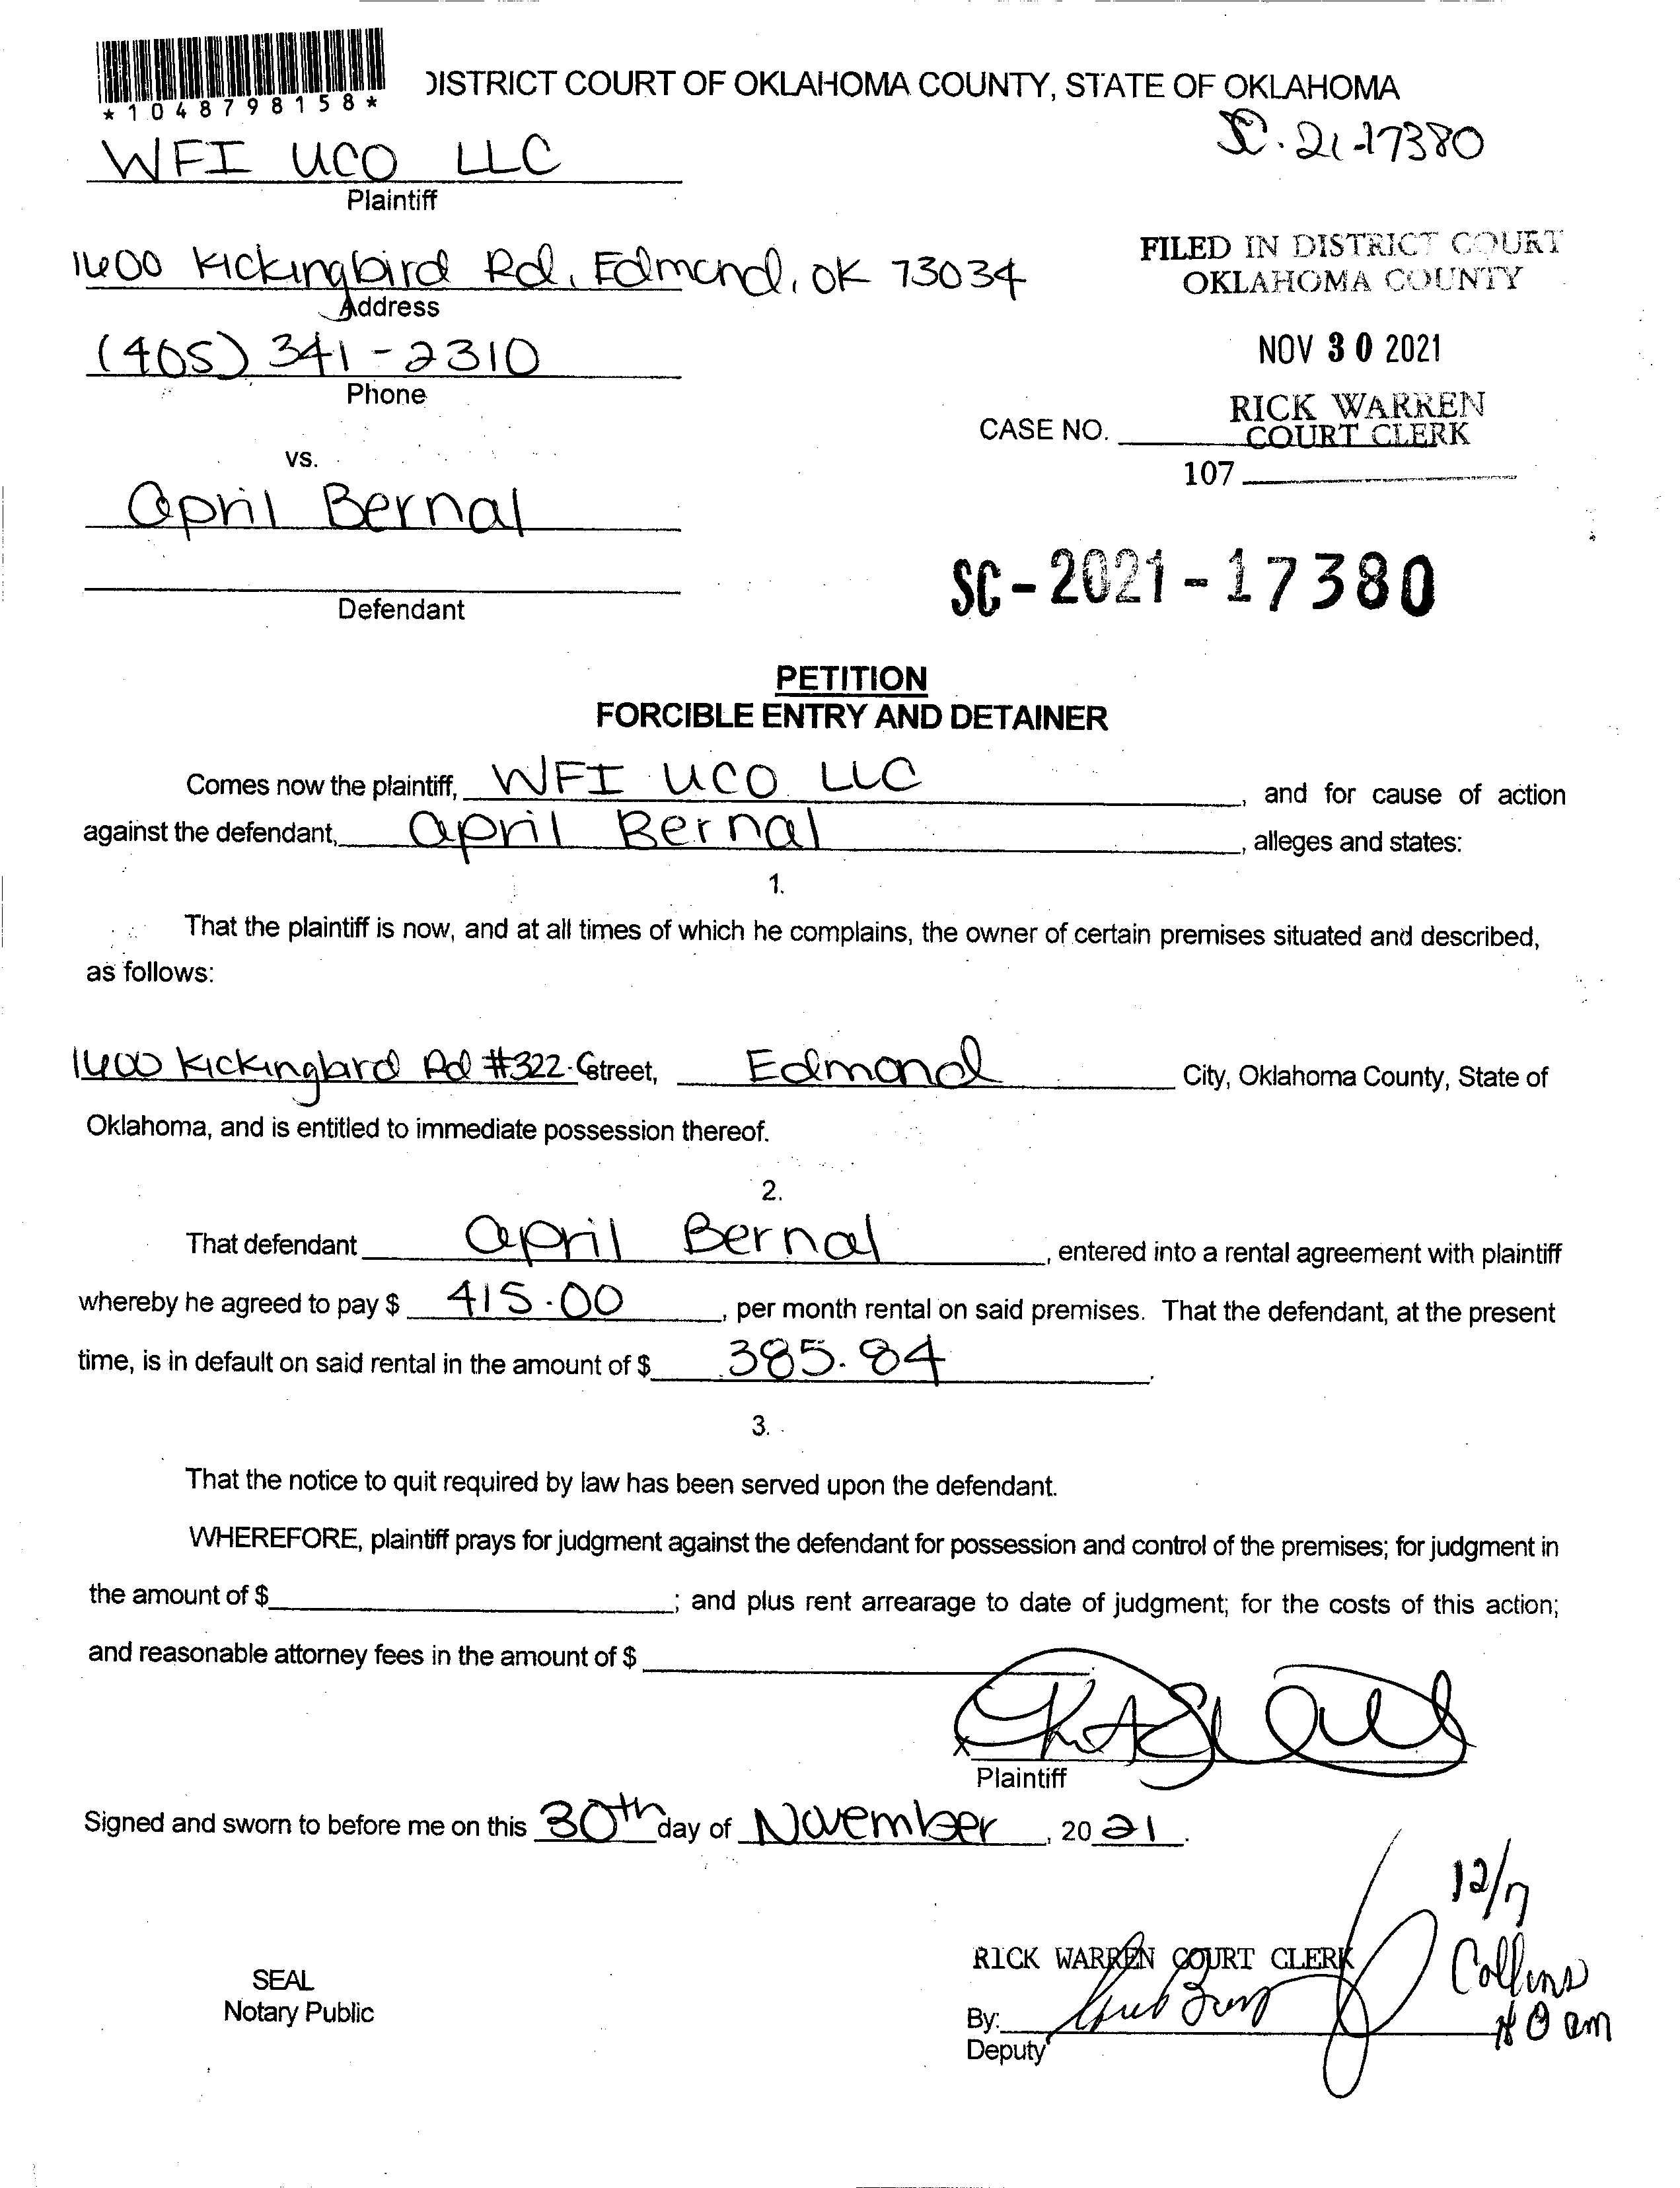 *1048798158*
DISTRICT COURT OF OKLAHOMA COUNTY, STATE OF OKLAHOMA
SC-21-17380
WFI UCO LLC
Plaintiff
1400 Kickingbird Rd, Edmond, OK 73034
Address
(405) 341-2310
Phone
FILED IN DISTRICT COURT
OKLAHOMA COUNTY
NOV 30 2021
RICK WARREN
COURT CLERK
CASE NO.
107
vs.
April Bernal
Defendant
SC-2021-17380
PETITION
FORCIBLE ENTRY AND DETAINER
Comes now the plaintiff, WFI UCO LLC, and for cause of action
against the defendant, April Bernal, alleges and states:
1.
That the plaintiff is now, and at all times of which he complains, the owner of certain premises situated and described,
as follows:
1400 Kickingbird Rd #322-C street, Edmond City, Oklahoma County, State of
Oklahoma, and is entitled to immediate possession thereof.
2.
That defendant April Bernal, entered into a rental agreement with plaintiff
whereby he agreed to pay $ 415.00, per month rental on said premises. That the defendant, at the present
time, is in default on said rental in the amount of $ 385.84.
3.
That the notice to quit required by law has been served upon the defendant.
WHEREFORE, plaintiff prays for judgment against the defendant for possession and control of the premises; for judgment in
the amount of $ ; and plus rent arrearage to date of judgment; for the costs of this action;
and reasonable attorney fees in the amount of $ .
x
Plaintiff
Signed and sworn to before me on this 30th day of November, 2021.
12/7
Collins
RICK WARREN COURT CLERK
SEAL
Notary Public
By:
Deputy
am